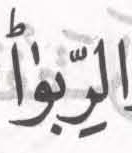 الرِّبٰوا